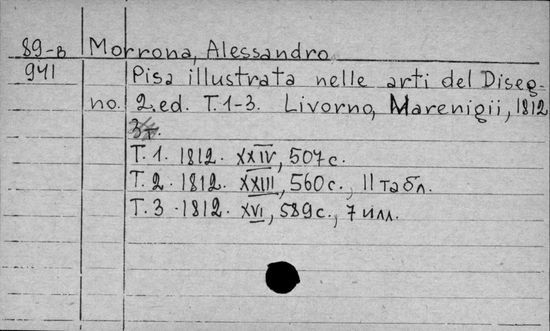 89-В Morrona, Alessandro
941 Pisa illustrata nelle arti del Diseg-
no. 2.ed. T.1-3. Livorno, Marenigii, 1812
3т.
T.1. 1812. XXIV, 507с.
T.2. 1812. XXIII, 560с., 11 табл.
T.3. 1812. XVI, 589с., 7 илл.